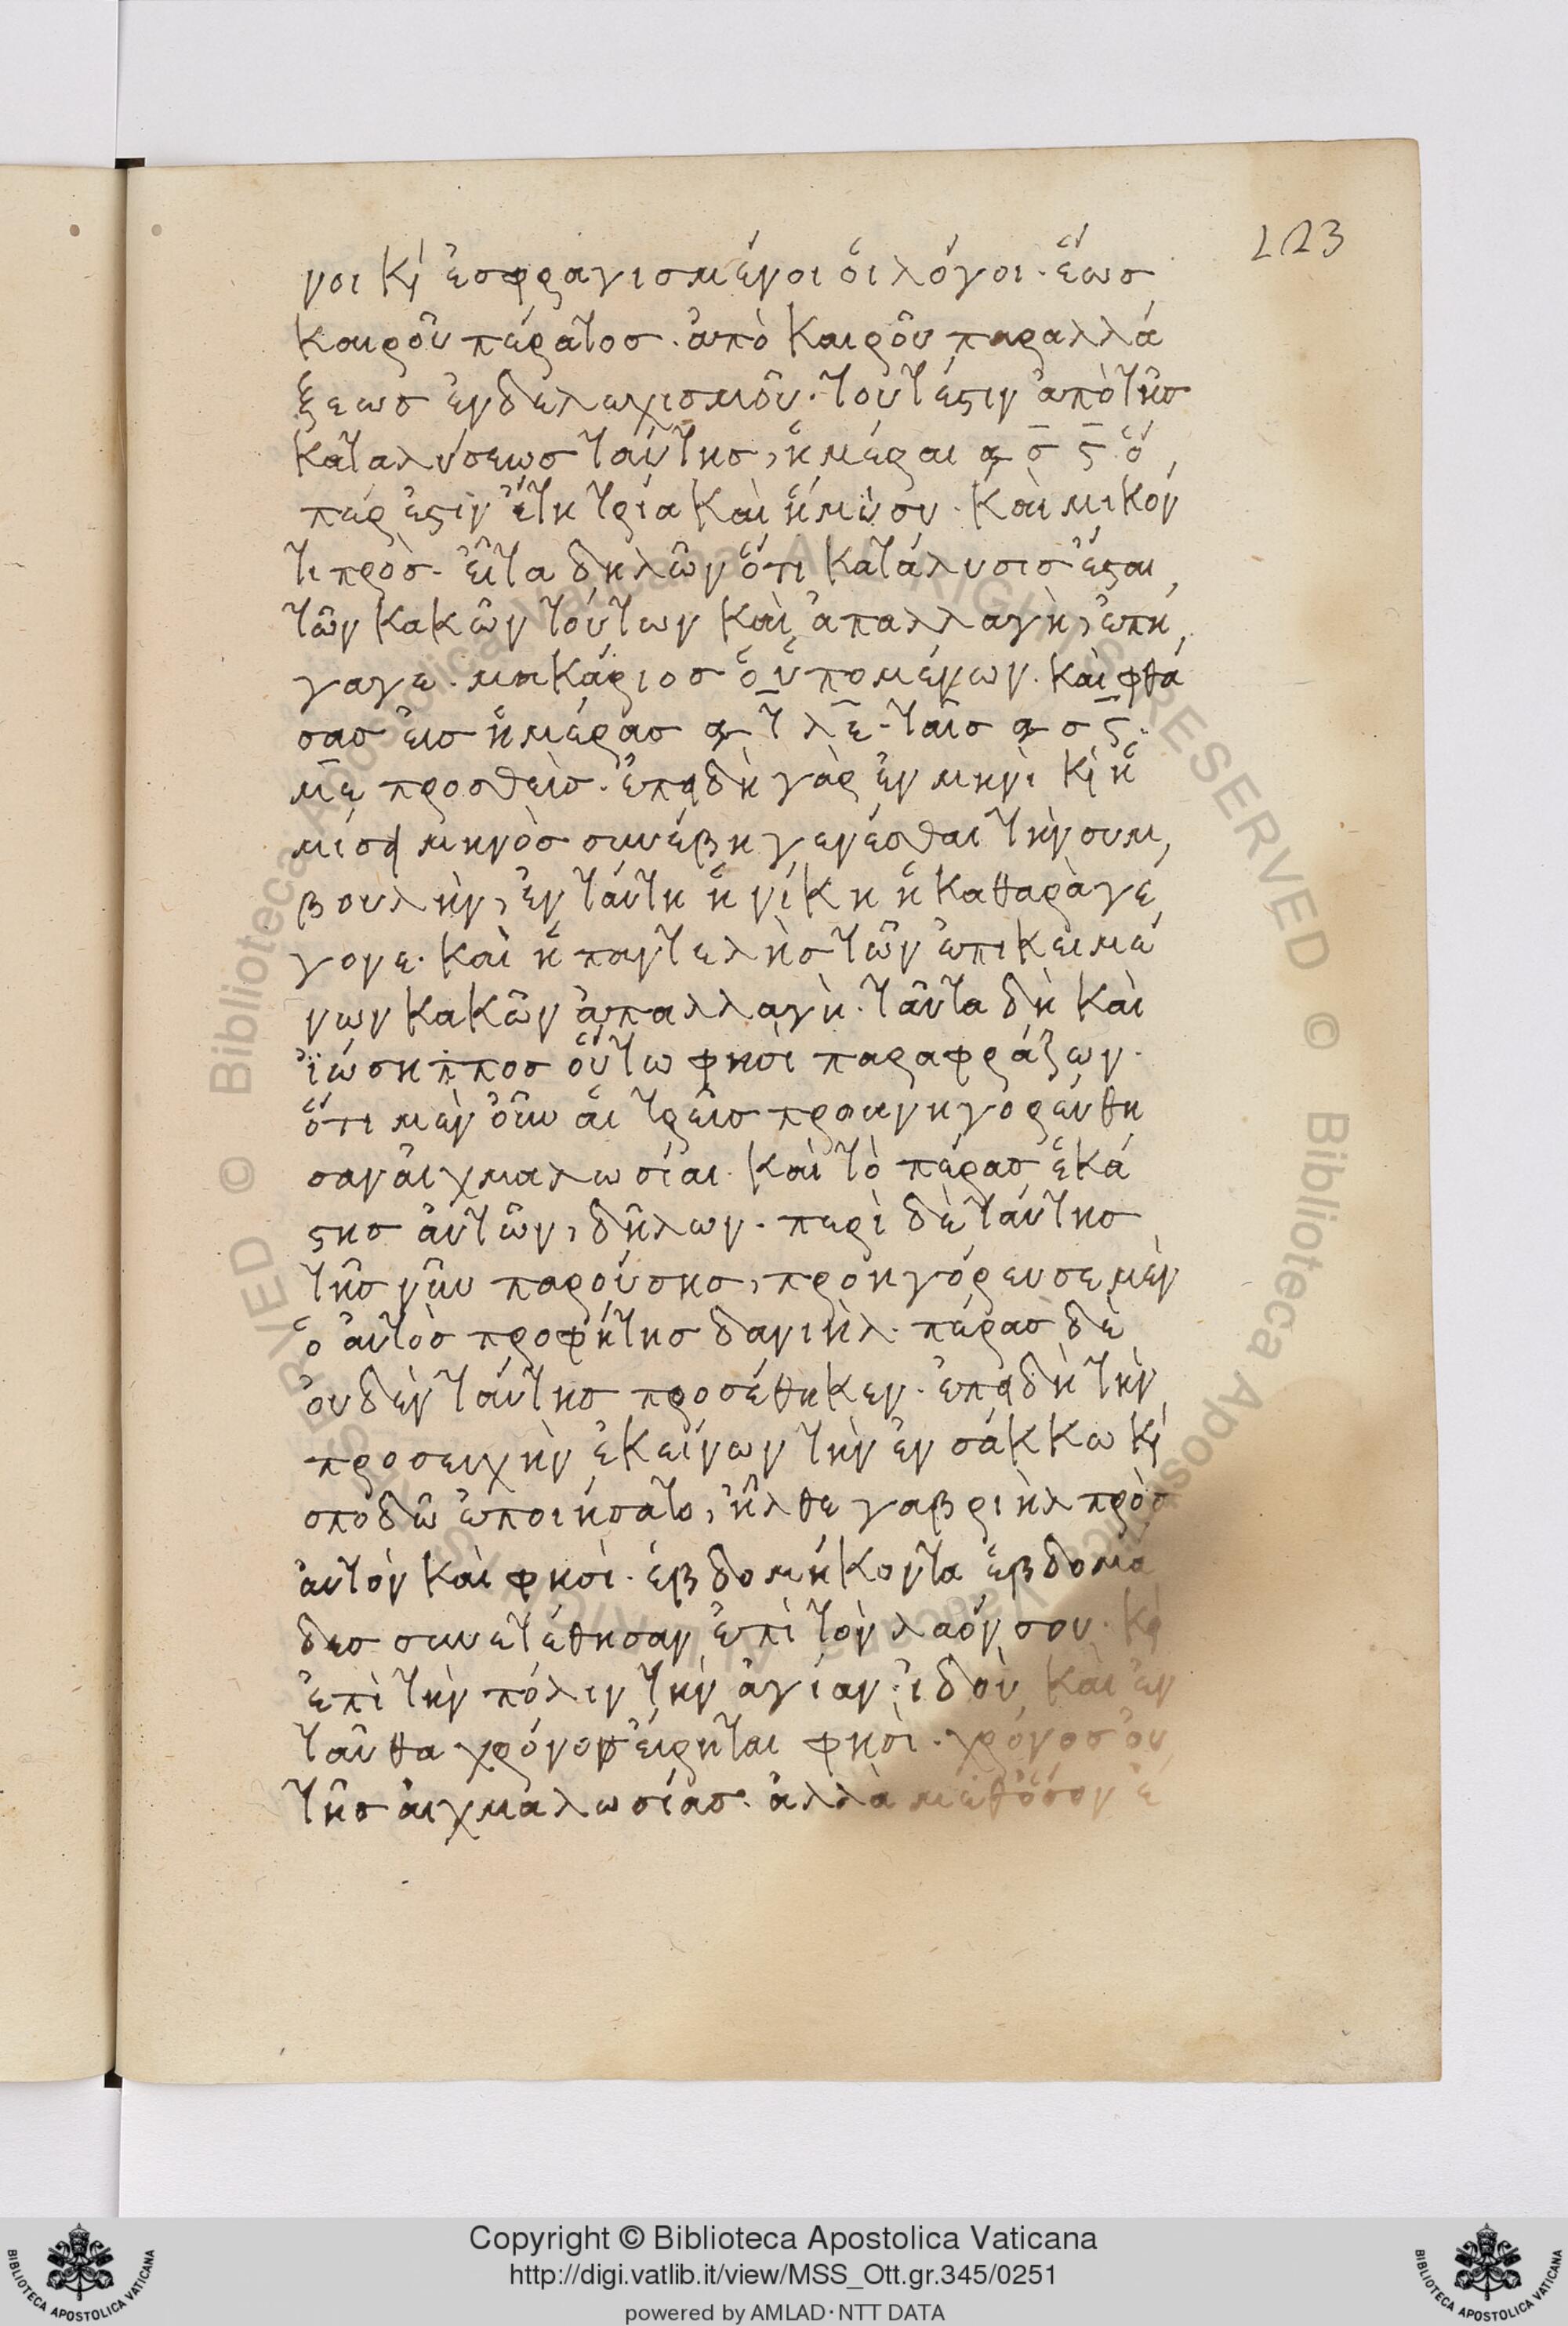 223
νοι κỳ ἐσφραγισμένοι ὁι λόγοι. ἕως
καιροῦ πέρατος. ἀπὸ καιροῦ παραλλά
ξεως ἐνδελεχισμοῦ. τουτέϛιν ἀπὸ τῆς
καταλύσεως ταύτης, ἡμέραι α σ ϛ ὅ
περ ἐϛὶν ἔτη τρία καὶ ἥμισυ. καὶ μικόν
τι πρὸς. εἶτα δηλῶν ὅτι κατάλυσις ἔϛαι
τῶν κακῶν τούτων καὶ ἀπαλλαγὴ, ἐπή
γαγε. μακάριος ὁ ὑπομένων. καὶ φθά
σας εἰς ἡμέρας α τ λε. ταῖς α σ ϛ.
με προσθεὶς. ἐπειδὴ γὰρ ἐν μηνὶ κὶ ἡ
μίσει μηνὸς συνέβη γενέσθαι τὴν συμ
βουλὴν, ἐν ταύτη ἡ νίκη ἡ καθαρὰ γέ
γονε. καὶ ἡ παντελὴς τῶν ἐπικειμέ
νων κακῶν ἀπαλλαγὴ. ταῦτα δὴ καὶ
ἰώσηππος οὕτω φησὶ παραφράζων.
ὅτι μὲν οὖν ἁι τρεῖς προανηγορεύθη
σαν ἀιχμαλωσίαι. καὶ τὸ πέρας ἑκά
ϛης ἀυτῶν, δῆλων. περὶ δὲ ταύτης
τῆς νῦν παρούσης, προηγόρευσε μὲν
ὁ ἀυτὸς προφήτης δανιὴλ. πέρας δὲ
ὀυδὲν ταύτης προσέθηκεν. ἐπειδὴ τὴν
προσευχὴν ἐκείνων τὴν ἐν σάκκω κὶ
σποδῶ ἐποιήσατο, ἦλθε γαβριὴλ πρὸς
ἀυτὸν καὶ φησὶ. ἑβδομήκοντα ἑβδομά
δες συνετέθησαν ἐπὶ τὸν λαόν σου. κὶ
ἐπὶ τὴν πόλιν τὴν ἁγίαν. ἰδοὺ καὶ ἐν
ταῦθα χρόνος ἐίρηται φησὶ. χρόνος ὀυ
τῆς ἀιχμαλωσίας. ἀλλὰ μεθ᾽ὅσον ἐ
Copyright © Biblioteca Apostolica Vaticana
http://digi.vatlib.it/view/MSS_Ott.gr.345/0251
powered by AMLAD·NTT DATA